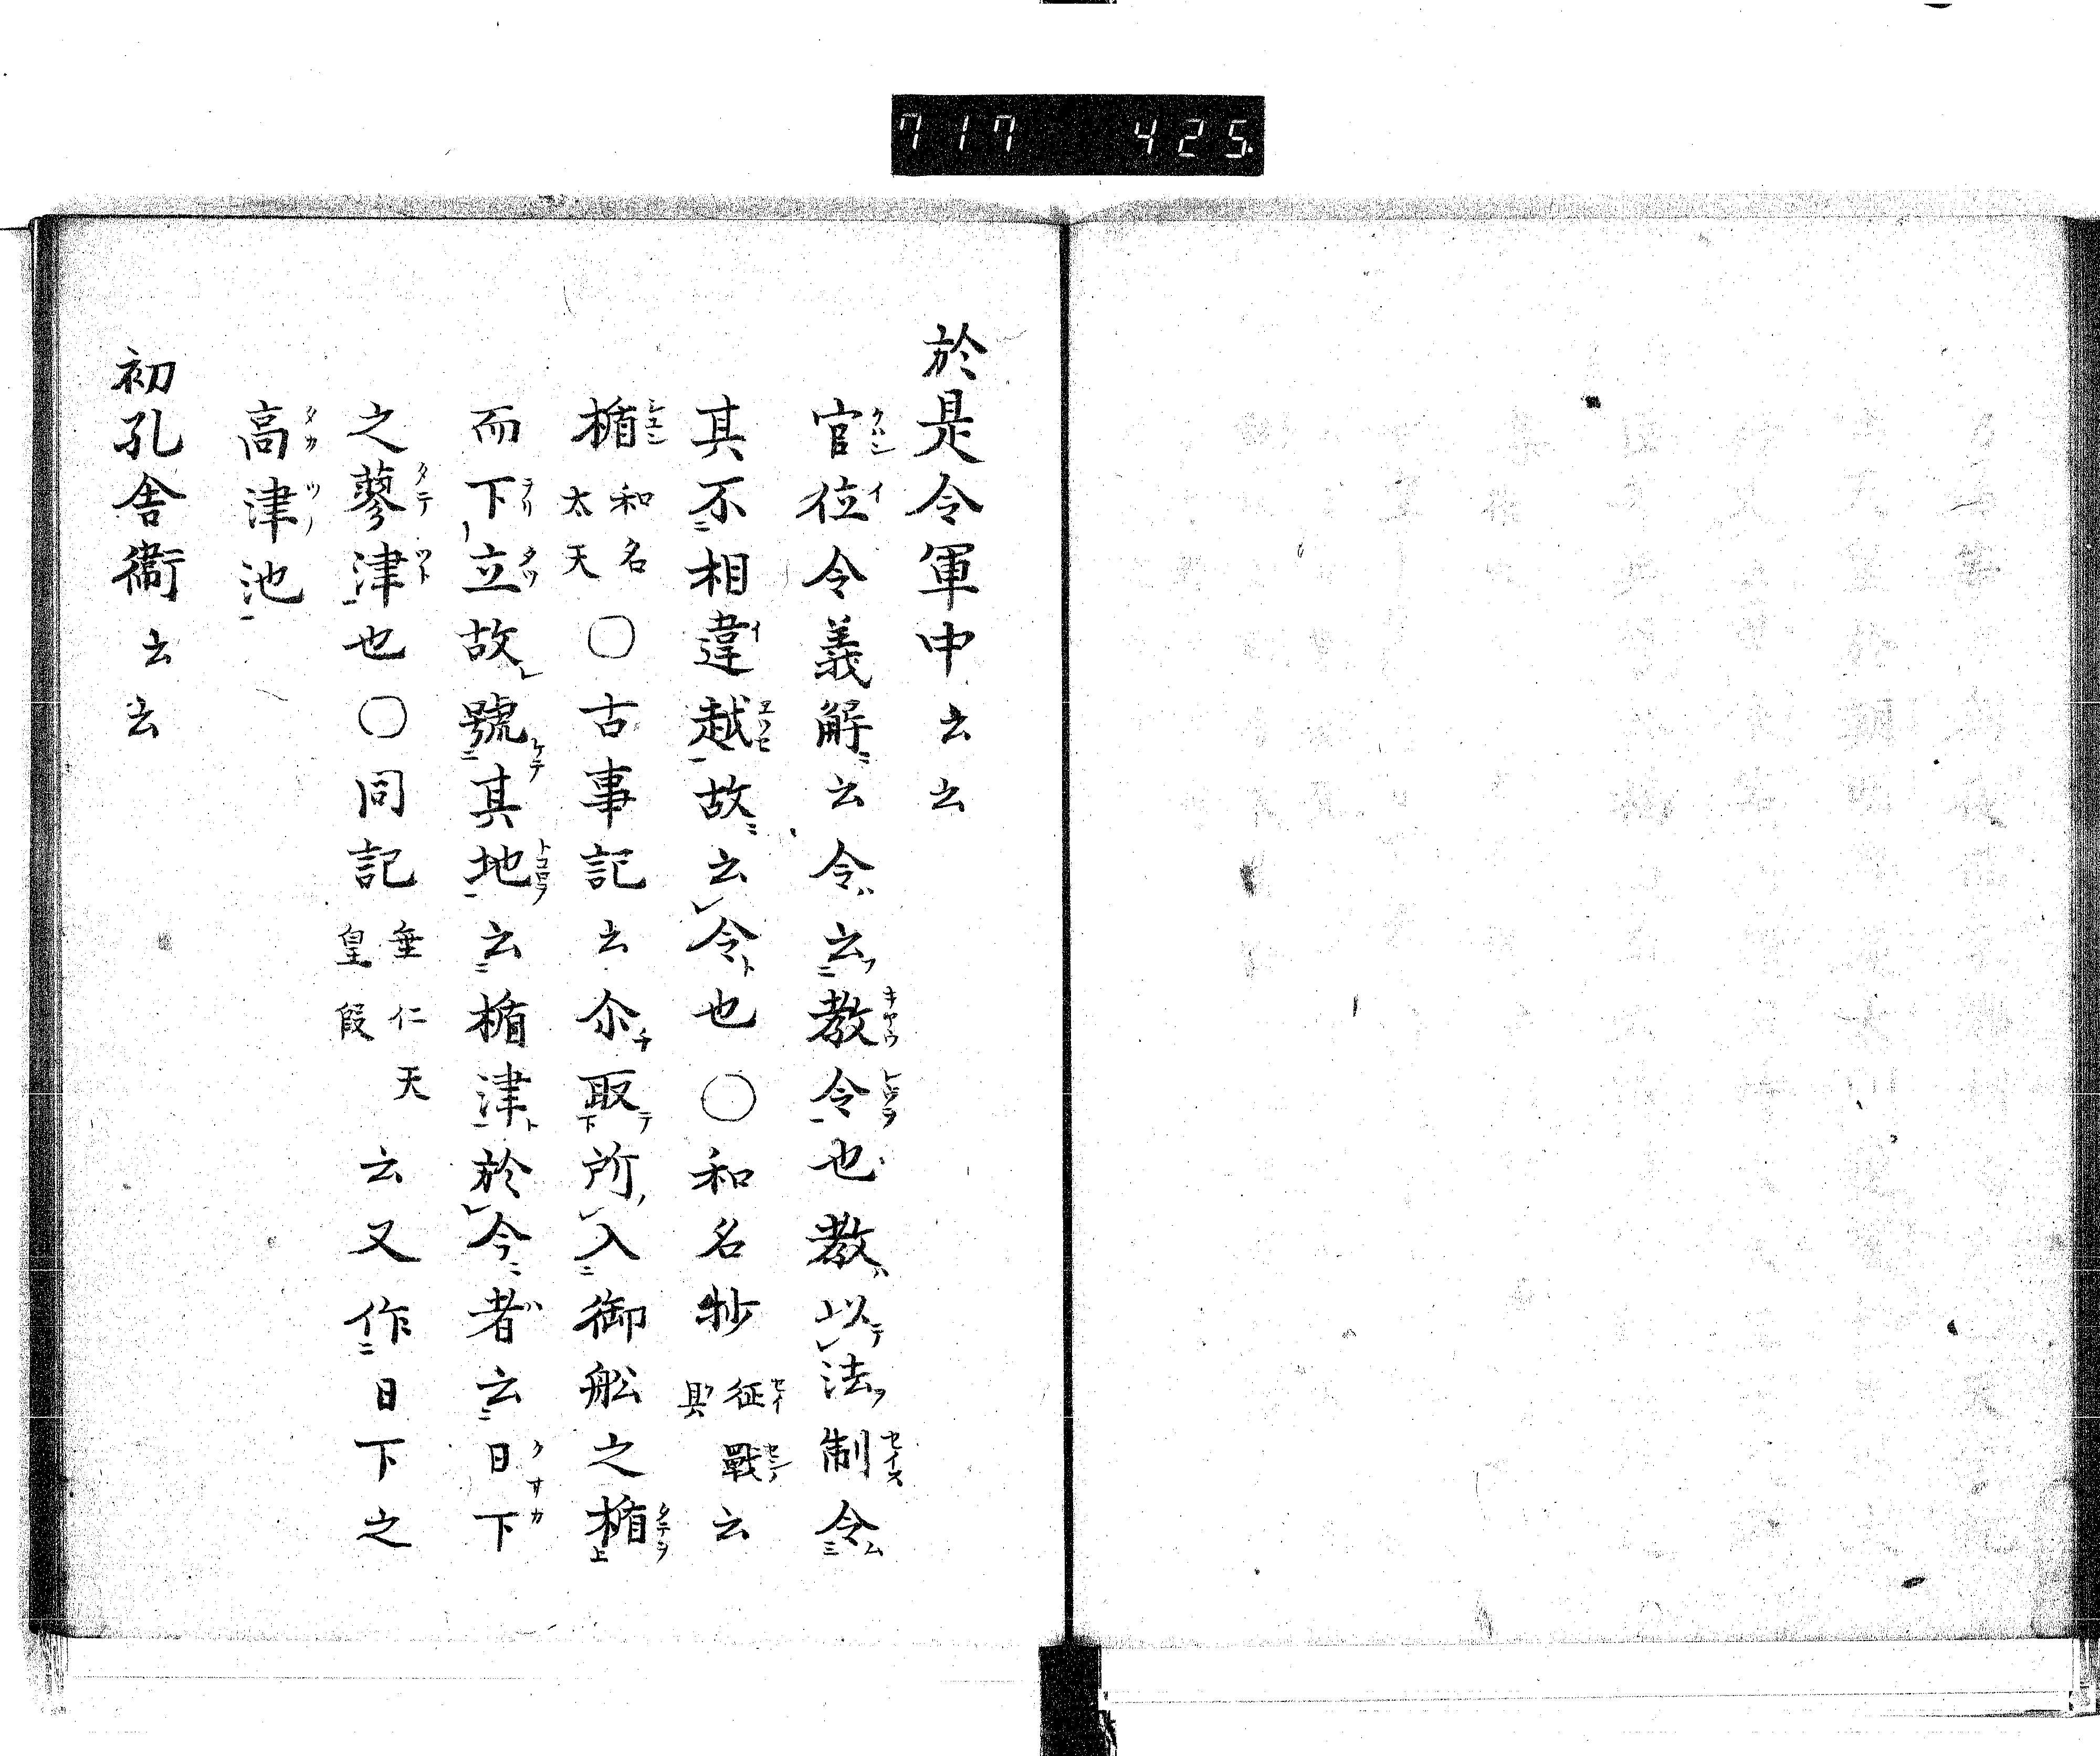 717 425
於是令軍中云云
官位令義解云令云教令也教以法制令
其不相違越故云令也○和名抄征戰具云
楯和名太天○古事記云尒取所入御舩之楯
而下立故號其地云楯津於今者云日下
之蓼津也○同記垂仁天皇段云又作日下之
高津池
初孔舎衞云云